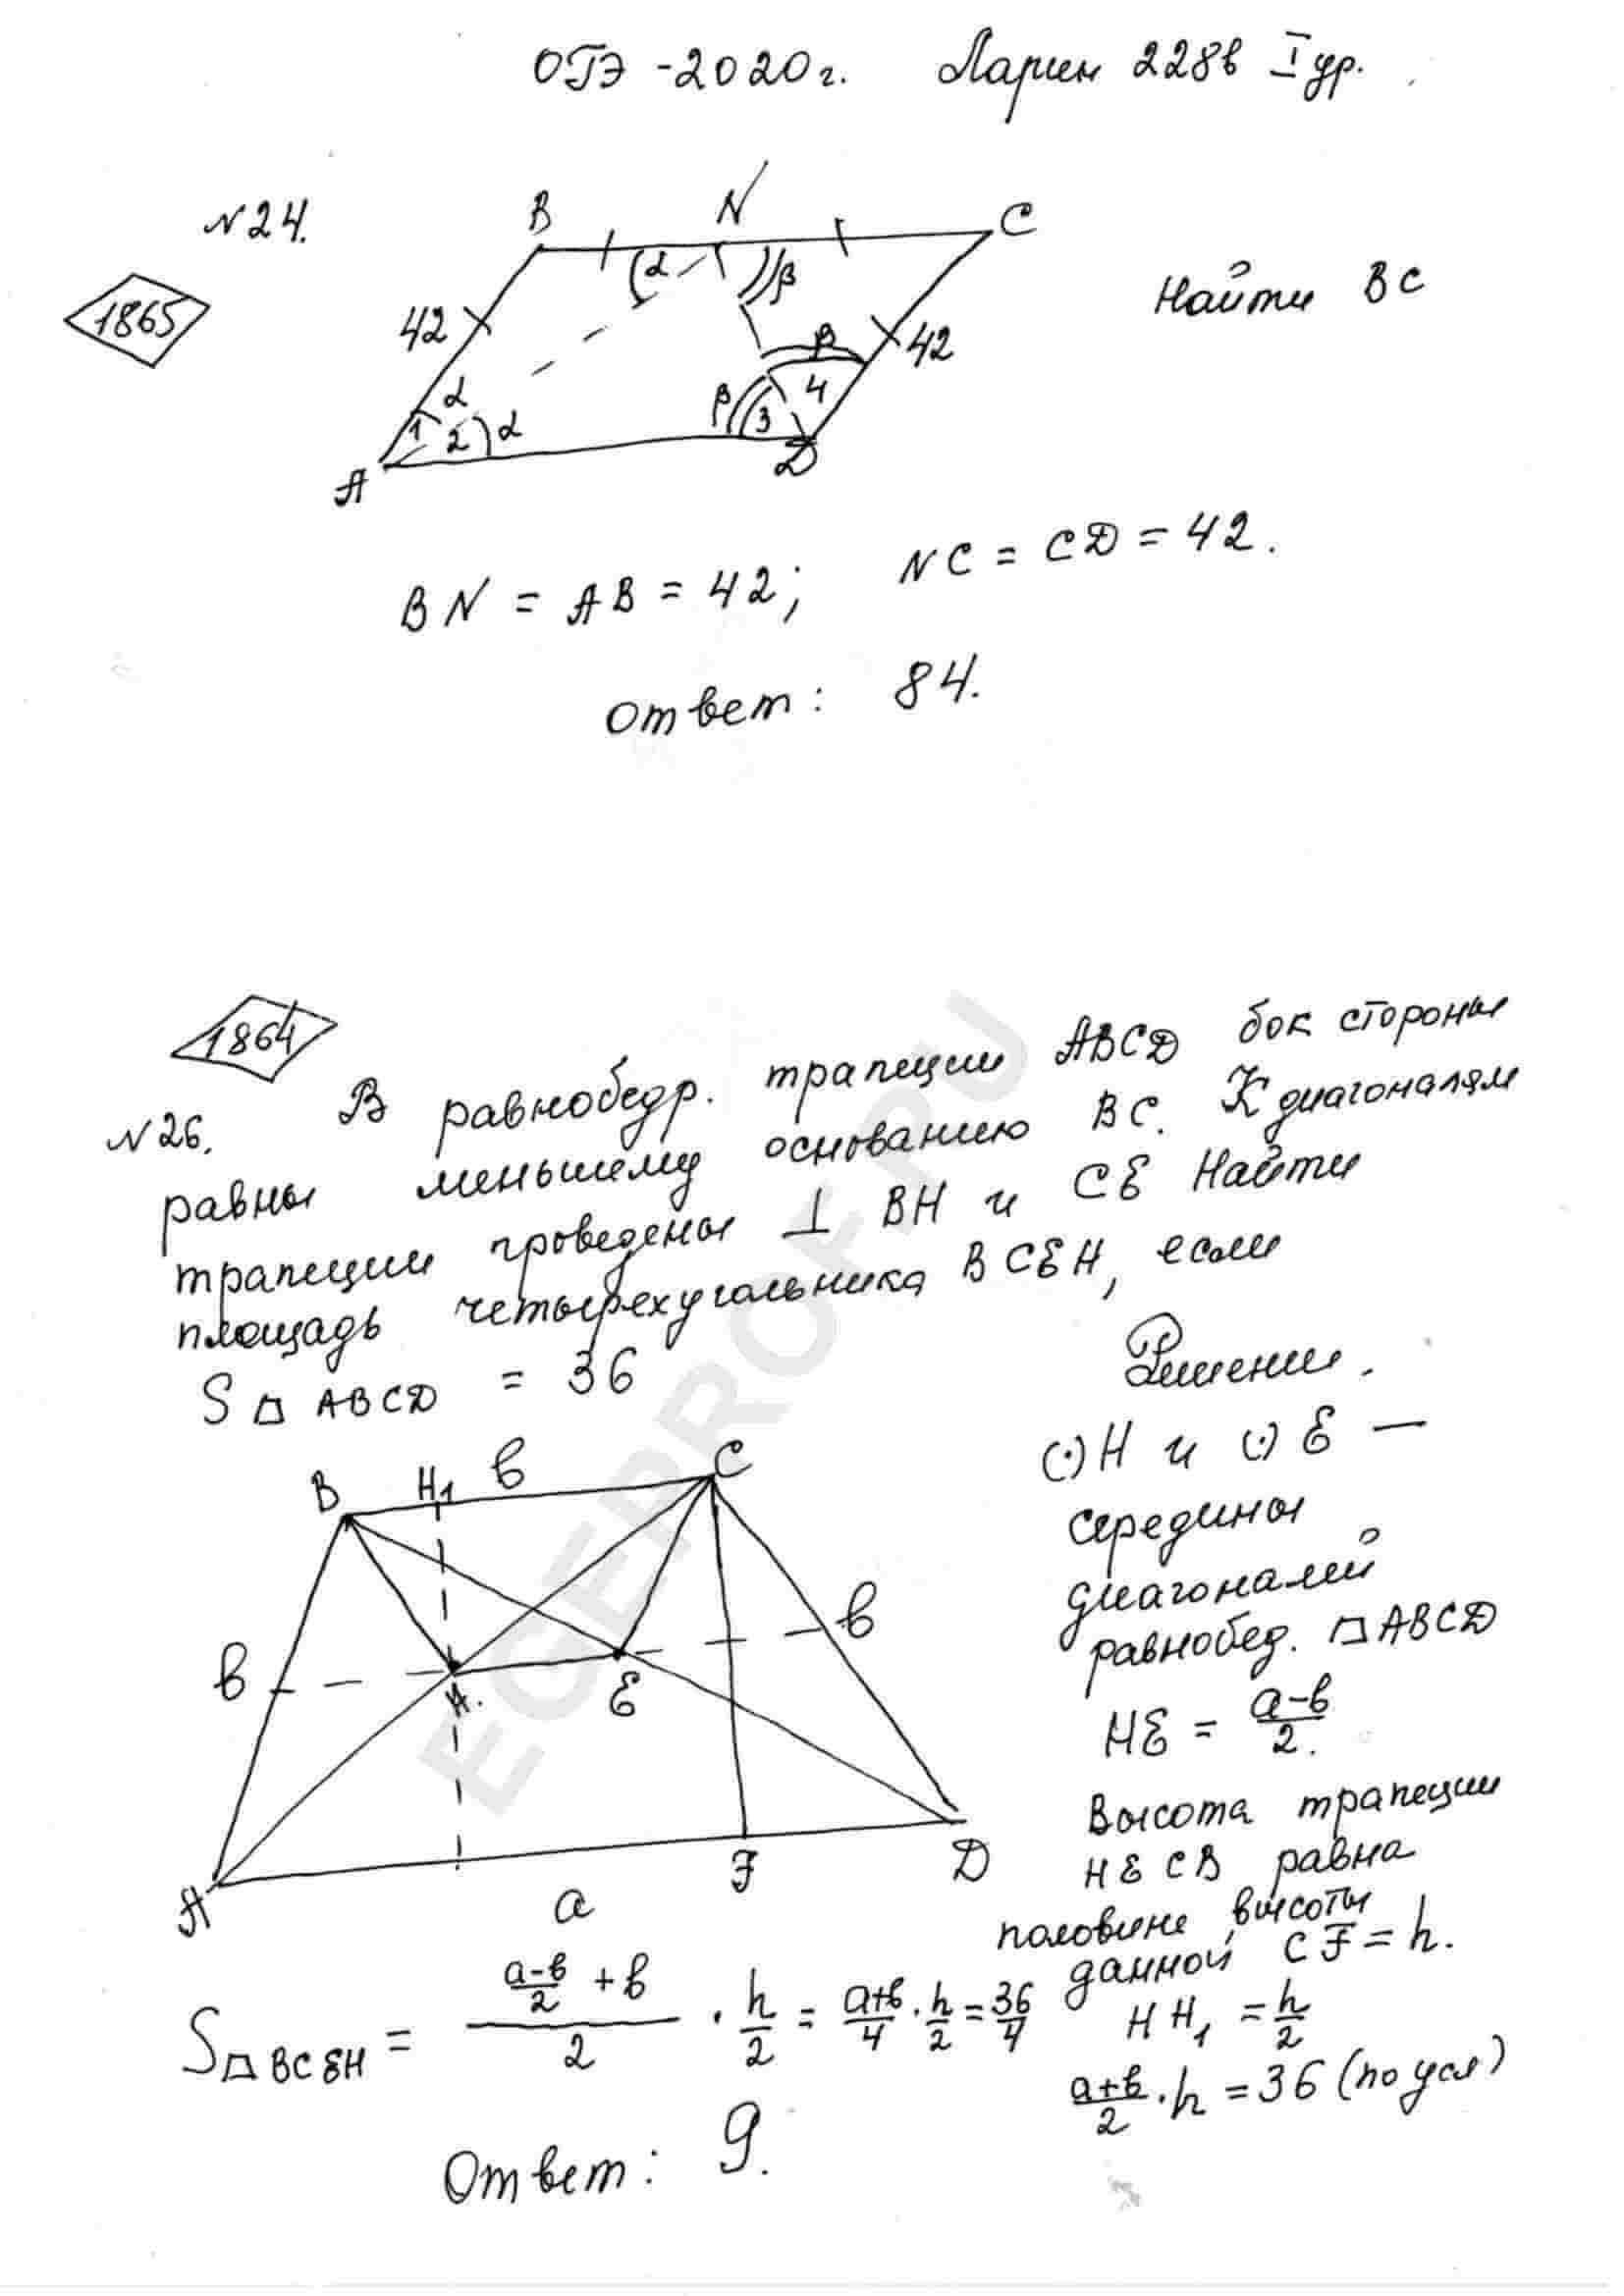 ОГЭ -2020г. Ларин 228в I ур.
N24.
1865
B N C
α β
42 42
β
α 4
1 2 α β 3
A D
Найти BC
BN = AB = 42; NC = CD = 42.
Ответ: 84.
1864
N26. В равнобедр. трапеции ABCD бок стороны
равны меньшему основанию BC. К диагоналям
трапеции проведены ⊥ BH и CE Найти
площадь четырехугольника BCEH, если
S ABCD = 36
Решение.
(·)H и (·)E —
середины
диагоналей
равнобед. ABCD
HE = (a-в)/2.
Высота трапеции
HECB равна
половине высоты
данной CF = h.
HH₁ = h/2
(a+в)/2 · h = 36 (по усл)
B H₁ в C
в в
H. E
A a F D
S BCEH = ((a-в)/2 + в)/2 · h/2 = (a+в)/4 · h/2 = 36/4
Ответ: 9.
EGEPROF.RU